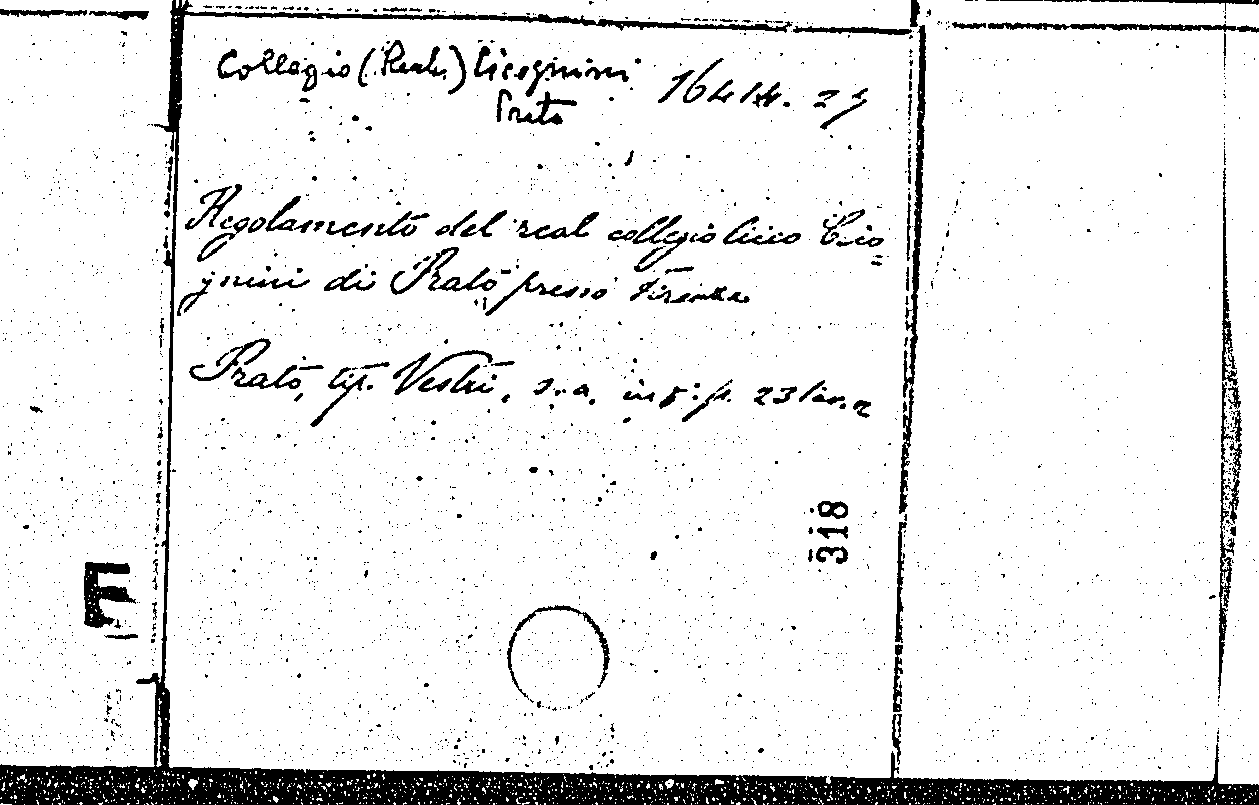 Collegio (Reale) Cicognini 16414. 25
Prato
Regolamento del real collegio liceo Cico=
gnini di Prato presso Firenze
Prato, tip. Vestri, s.a. in 8: p. 23
318
E